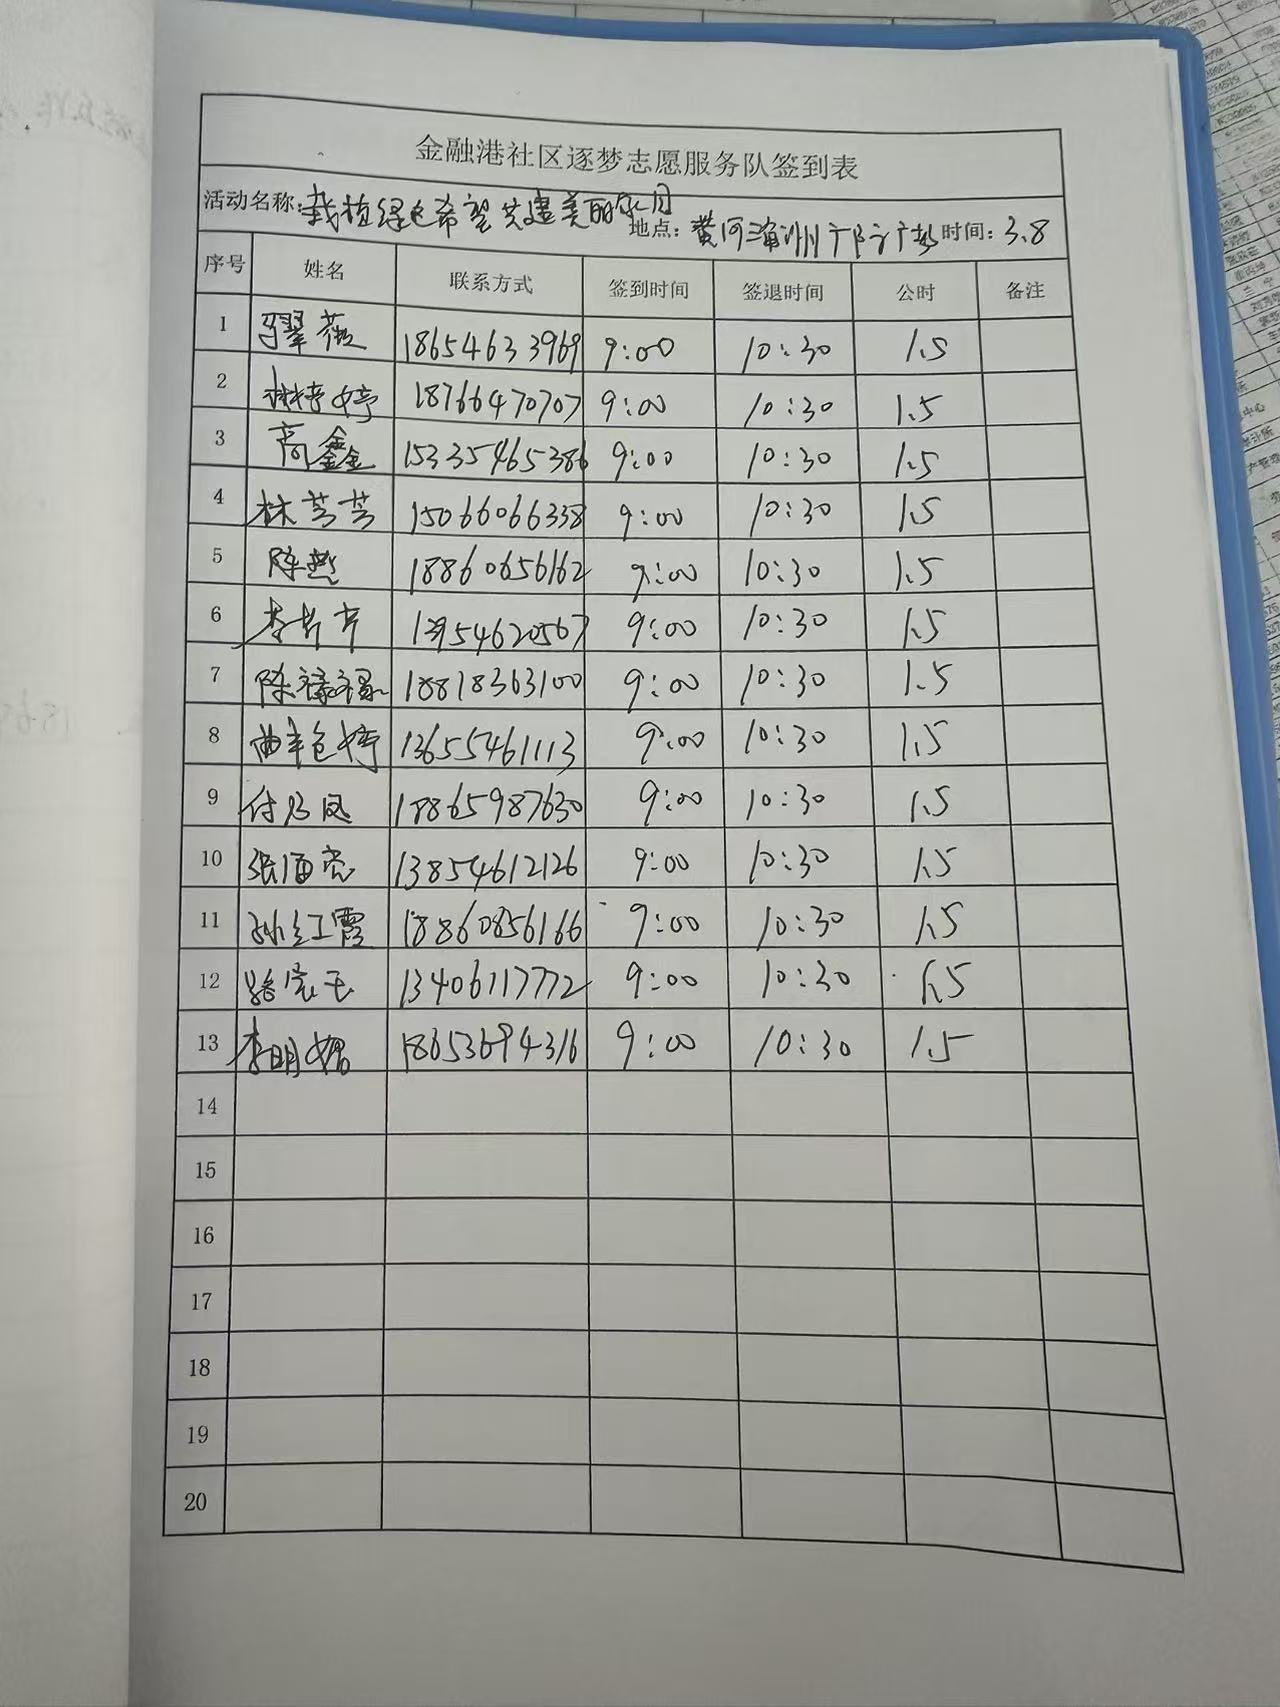 金融港社区逐梦志愿服务队签到表
活动名称:栽植绿色希望 共建美丽家园 地点:黄河 时间:3.8
序号 姓名 联系方式 签到时间 签退时间 公时 备注
1 翠薇 18654633969 9:00 10:30 1.5
2 婷婷 18766470707 9:00 10:30 1.5
3 高鑫 15335465386 9:00 10:30 1.5
4 林芸芸 15066066338 9:00 10:30 1.5
5 陈燕 18860656162 9:00 10:30 1.5
6 李 54620567 9:00 10:30 1.5
7 陈禄禄 18818363100 9:00 10:30 1.5
8 曲 婷 13655461113 9:00 10:30 1.5
9 付乃凤 18865987630 9:00 10:30 1.5
10 张 亮 13854612126 9:00 10:30 1.5
11 孙红霞 18860856166 9:00 10:30 1.5
12 玉 13406117772 9:00 10:30 1.5
13 李明 18653694316 9:00 10:30 1.5
14
15
16
17
18
19
20